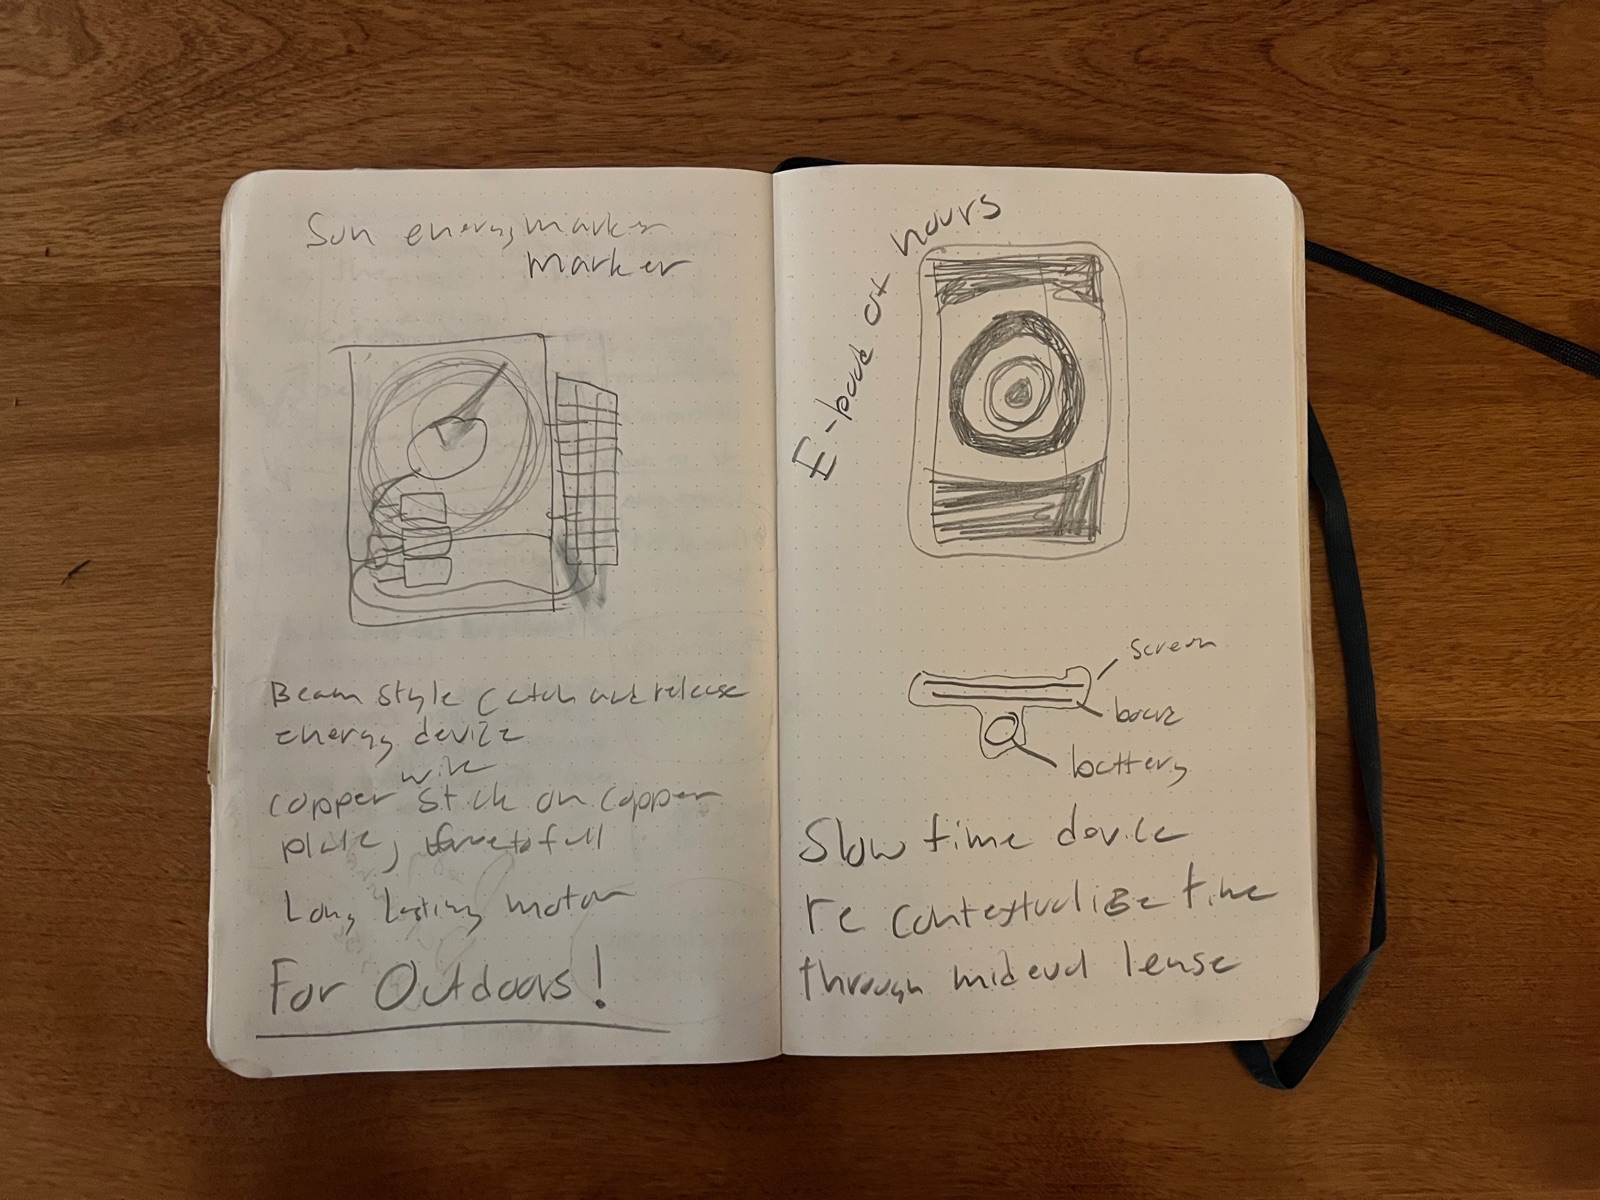 Sun energy marker
marker
Beam style catch and release
energy device
wire
copper stick on copper
plate,
Long lasting motor
For Outdoors!
E-book of hours
screen
board
battery
Slow time device
re contextualize time
through mideval lense